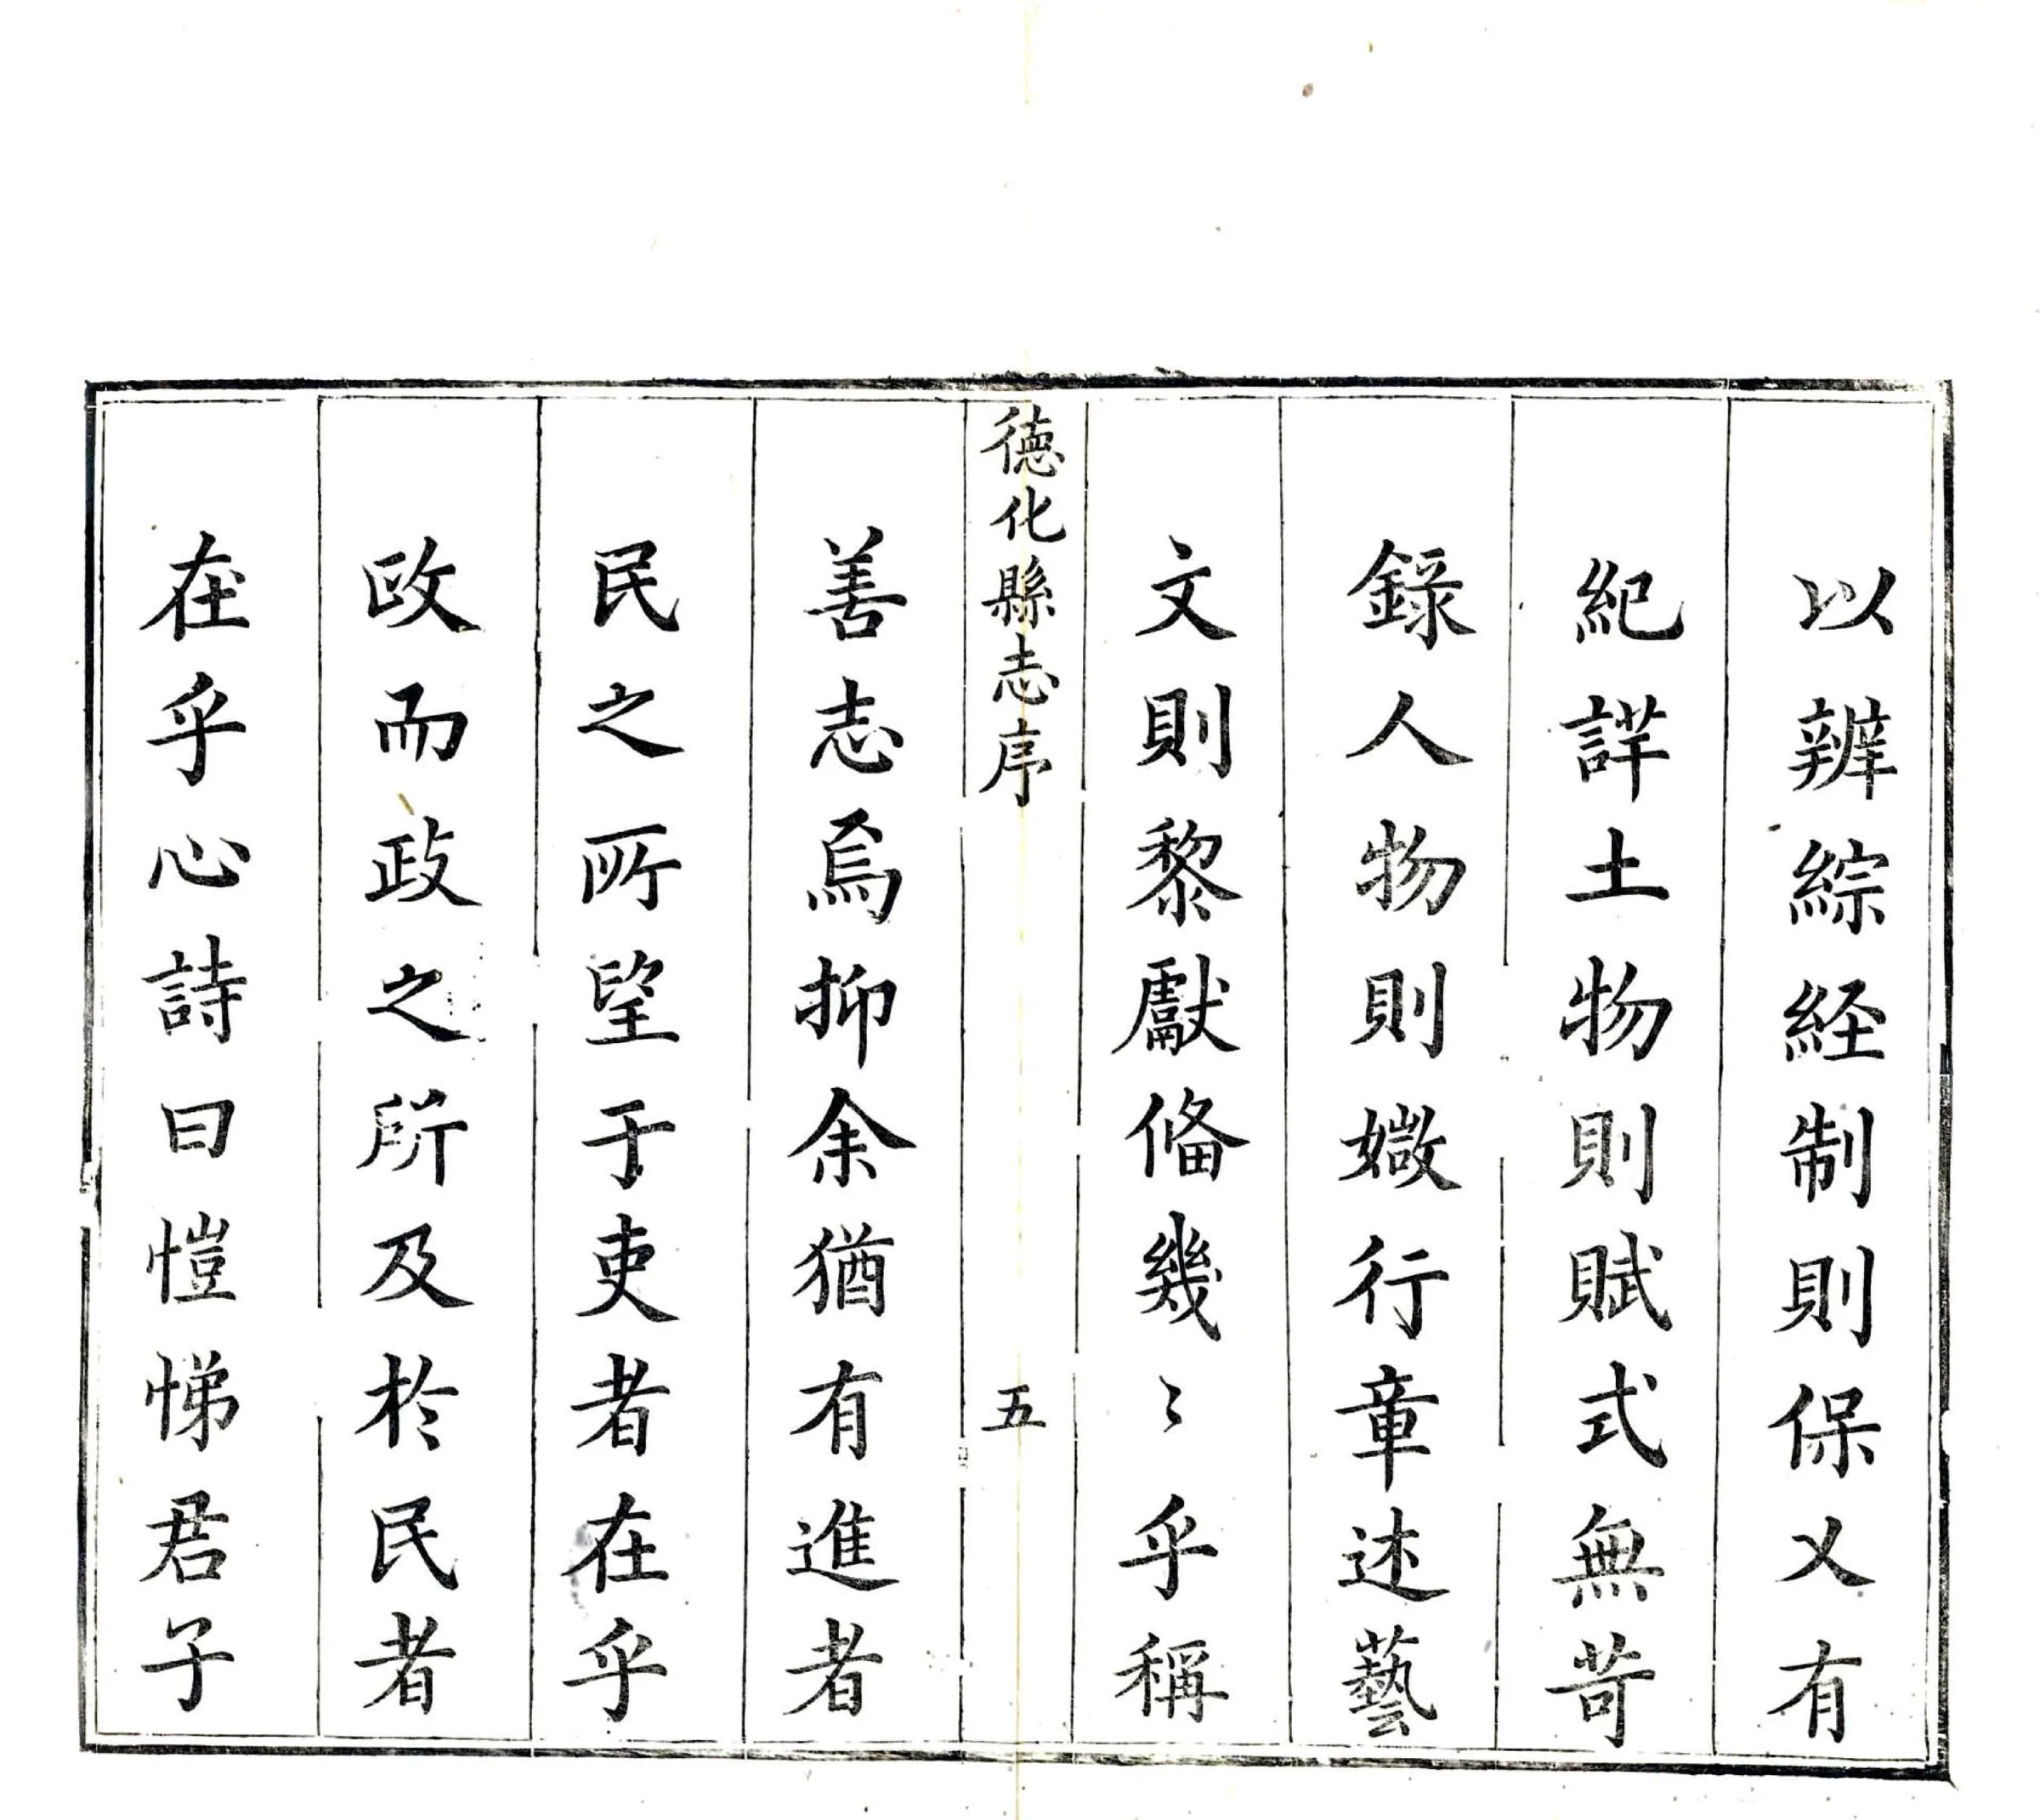 以辨綜経制則保乂有
紀詳土物則賦式無苛
錄人物則媺行章述藝
文則黎獻俻幾〻乎稱
德化縣志序
五
善志焉抑余猶有進者
民之所望于吏者在乎
政而政之所及於民者
在乎心詩曰愷悌君子